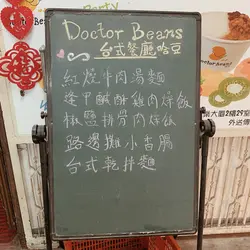 Doctor Beans
台式餐廳哈豆
紅燒牛肉湯麵
逢甲鹹酥雞肉燥飯
椒鹽排骨肉燥飯
路邊攤小香腸
台式乾拌麵